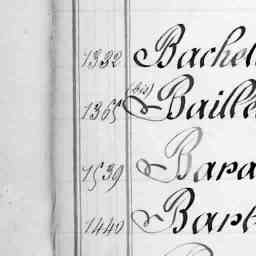 1332 Bachel
1365 (bis) Baillé
1539 Bara
1440 Bart